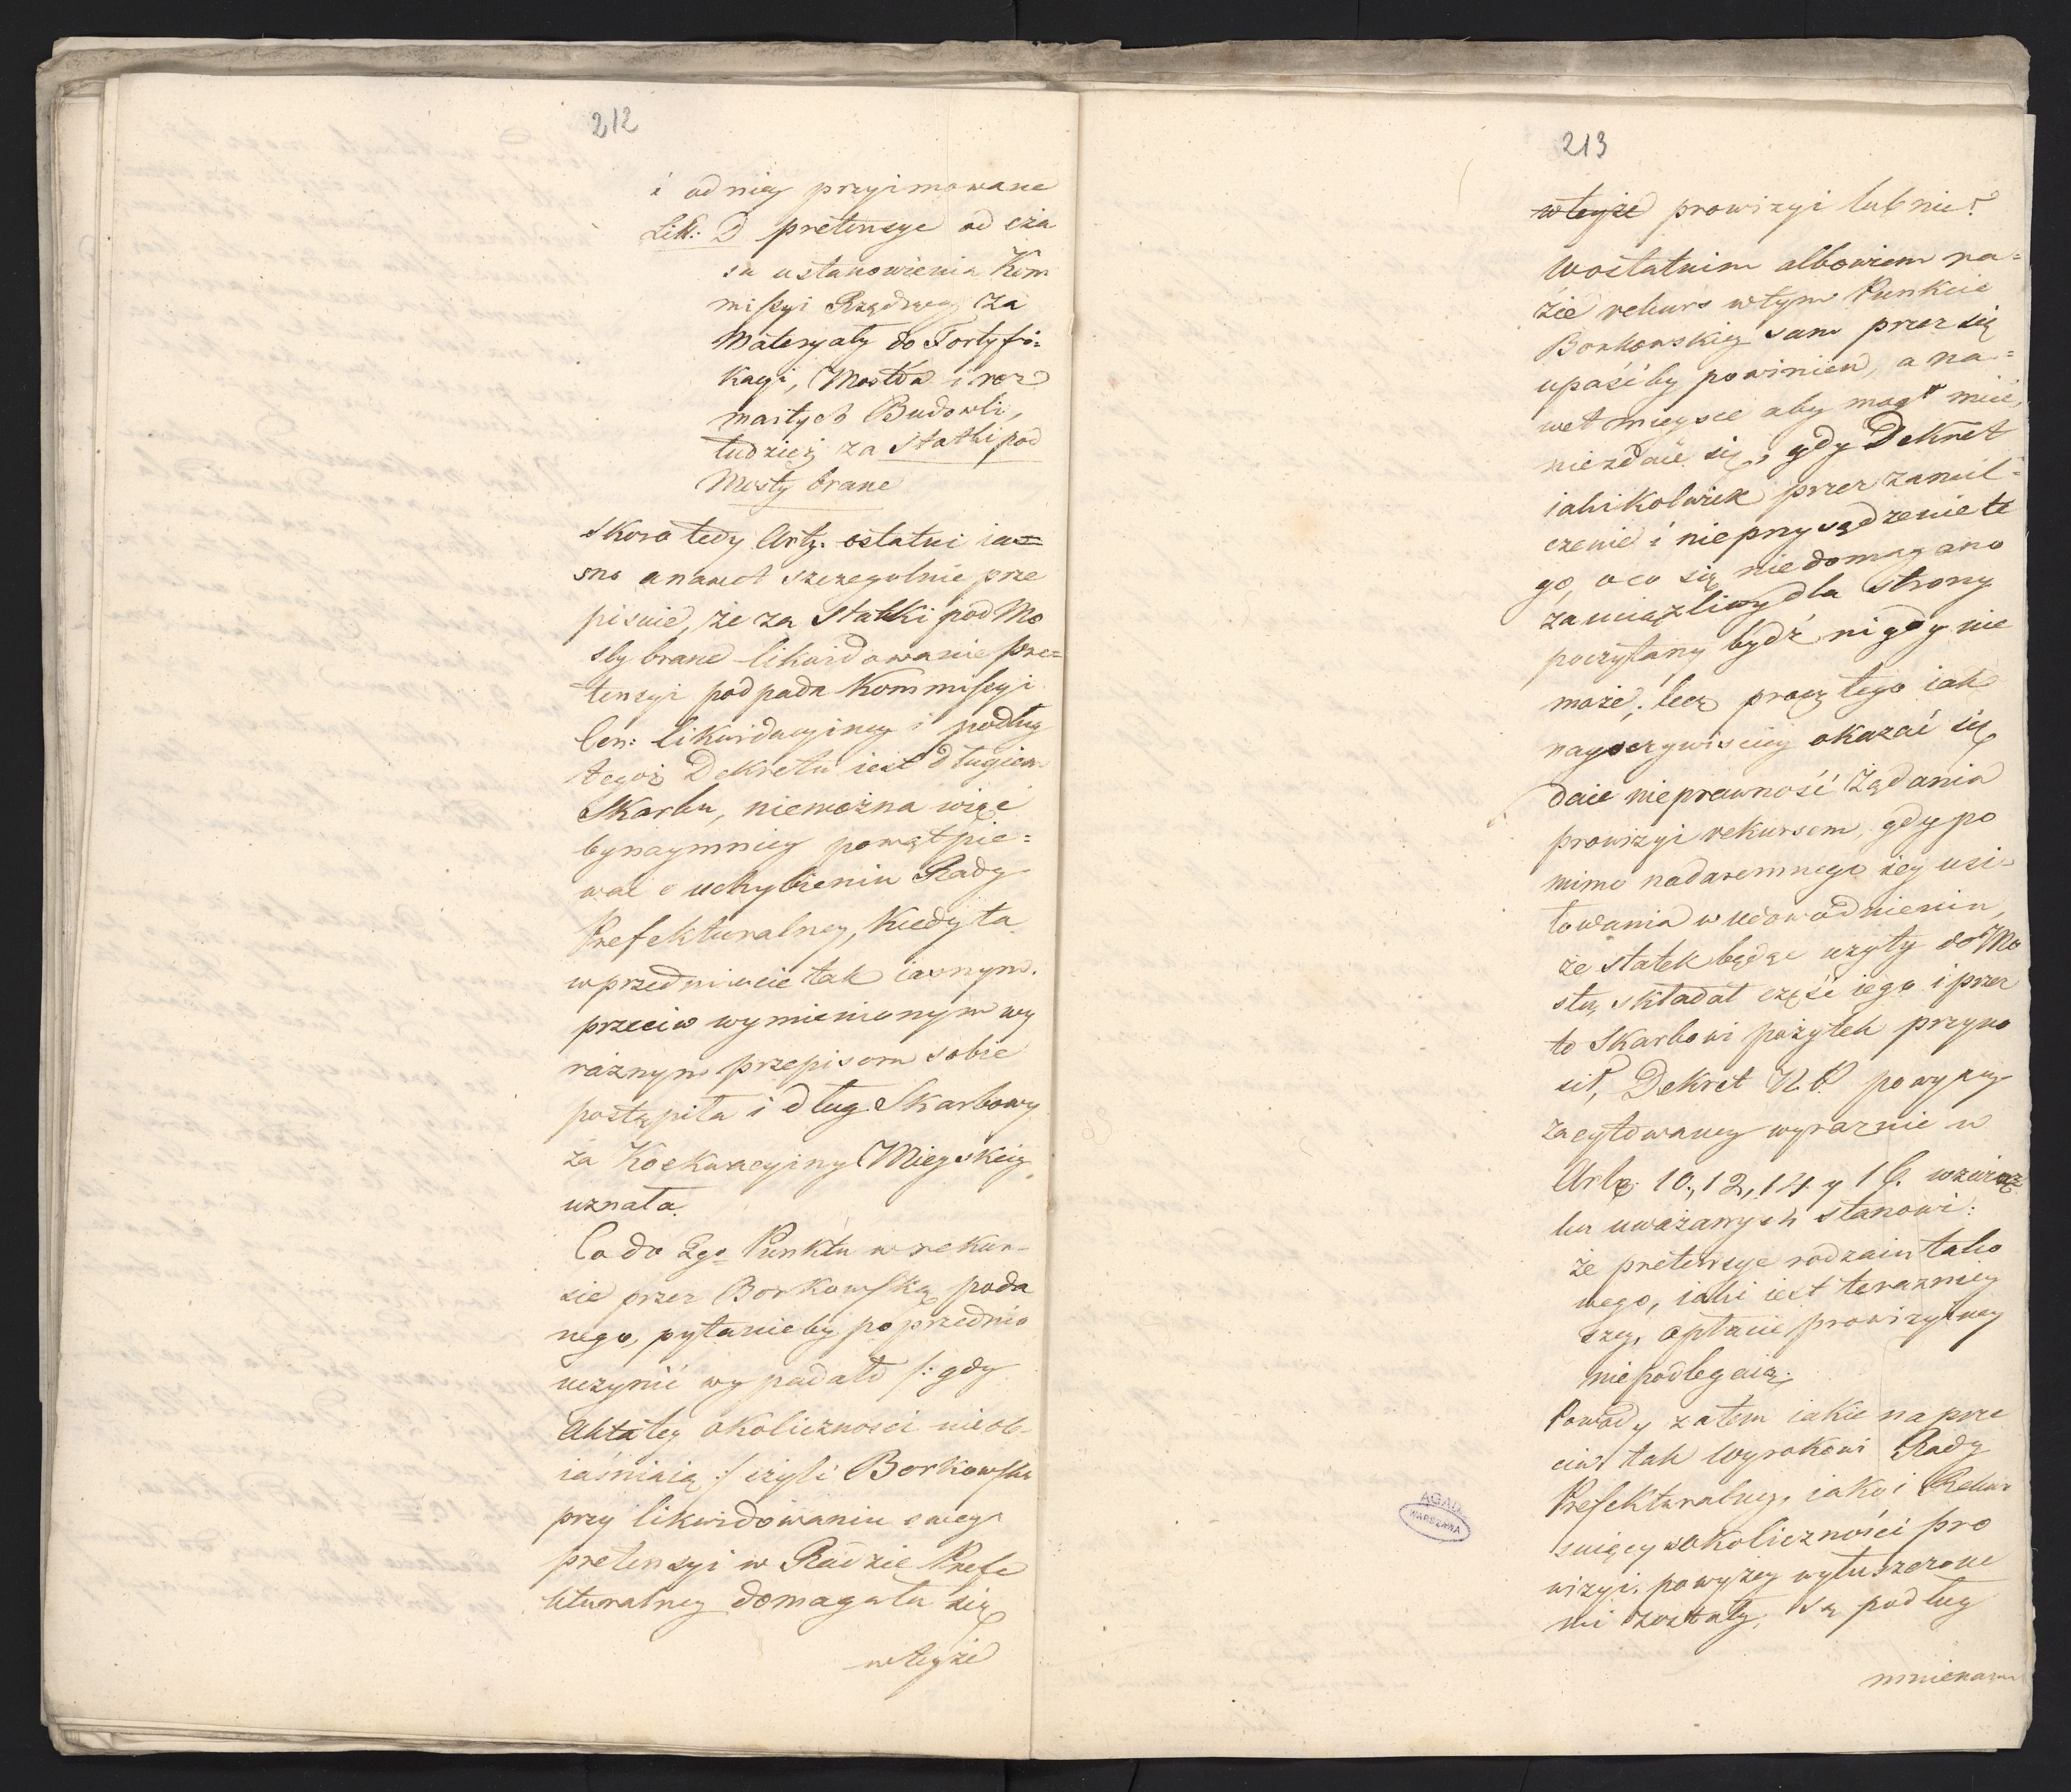 212
i od niey przyimowane
Litt: D pretensye od cza
su ustanowienia Kom
missyi Rządzącey za
Materyały do Fortyfi=
kacyi, Mostów i roz
maitych Budowli,
tudzież za Statki pod
Mosty brane
Skoro tedy Arty. ostatni ia=
sno a nawet szczegulnie prze
pisuie, że za Statki pod Mo
sty brane likwidowanie pre=
tensyi podpada Kommissyi
Cen: likwidacyiney i podług
tegoż Dekretu iest długiem
Skarbu, niemożna więc
bynaymniey powątpie=
wać o uchybieniu Rady
Prefekturalney, kiedy ta
w przedmiocie tak iasnym
przeciw wymienionym wy
raźnym przepisom sobie
postąpiła i dług Skarbowy
za Koekwacyiny Mieyskiey
uznała.
Co do 2go Punktu w rekur-
sie przez Borkowską poda
nego, pytanieby poprzednio
uczynić wypadało /: gdy
Akta tey okoliczności nieob-
iaśniaią :/ czyli Borkowska
przy likwidowaniu swey
pretensyi w Radzie Prefe
kturalney domagała się
w teyże
213
w teyże prowizyi lub nie?
W ostatnim albowiem ra=
zie rekurs w tym Punkcie
Borkowskiey sam przez się
upaśćby powinien, a na=
wet mieysce aby mogł mieć,
niezdaie się, gdy Dekret
iakikolwiek przez zamil=
czenie i nieprzysądzenie te
go, o co się niedomagano
za uciążliwy dla Strony
poczytany bydź nigdy nie
może; lecz procz tego iak
nayoczywisciey okazać się
daie nieprawność żądania
prowizyi rekursem, gdy po
mimo nadaremnego iey usi=
łowania w udowodnieniu,
że statek będąc użyty do Mo
stu, składał część iego i przez
to Skarbowi pożytek przyno
sił, Dekret N. P. powyżey
zacytowany wyraznie w
Arty. 10, 12, 14 y 16. w związ
ku uważanych stanowi:
że pretensye rodzaiu tako
wego, iaki iest terazniey
szey, opłacie prowizyiney
niepodlegaią.
Powody zatem iakie na prze
ciw tak Wyrokowi Rady
Prefekturalney, iako i Rekur
suiącey w okoliczności pro
wizyi, powyżey wyłuszczone
mi zostały, są podług
mniemam
AGAD
WARSZAWA